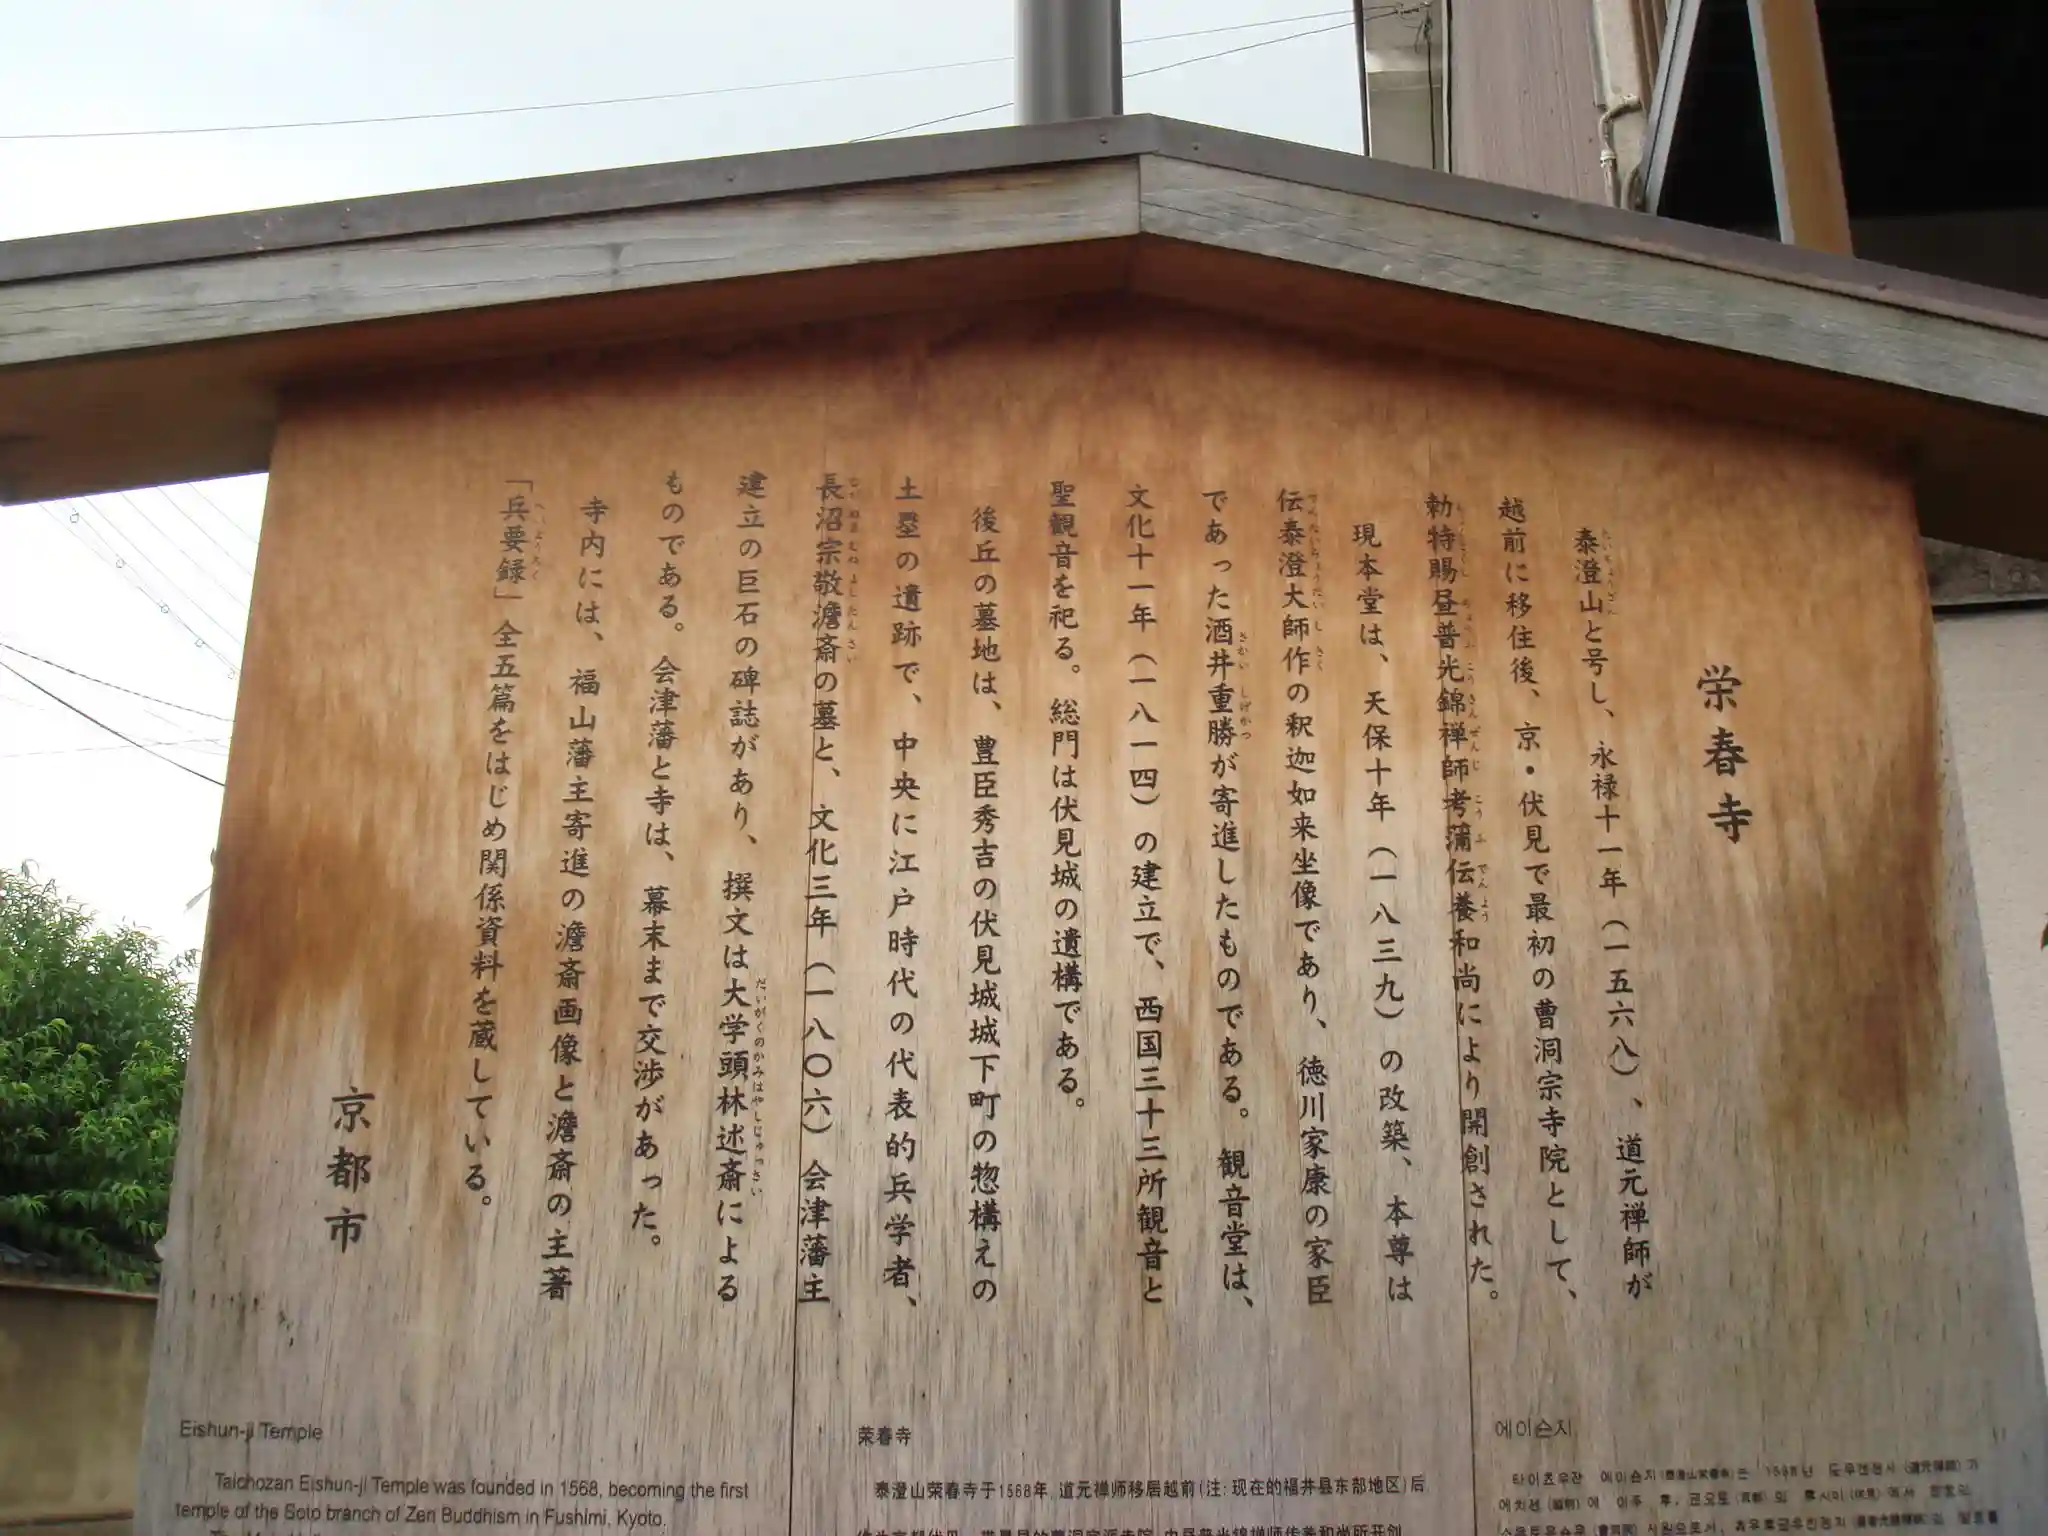 栄春寺
泰澄山と号し、永禄十一年(一五六八)、道元禅師が
越前に移住後、京・伏見で最初の曹洞宗寺院として、
勅特賜昼普光錦禅師考蒲伝養和尚により開創された。
現本堂は、天保十年(一八三九)の改築、本尊は
伝泰澄大師作の釈迦如来坐像であり、徳川家康の家臣
であった酒井重勝が寄進したものである。観音堂は、
文化十一年(一八一四)の建立で、西国三十三所観音と
聖観音を祀る。総門は伏見城の遺構である。
後丘の墓地は、豊臣秀吉の伏見城城下町の惣構えの
土塁の遺跡で、中央に江戸時代の代表的兵学者、
長沼宗敬澹斎の墓と、文化三年(一八〇六)会津藩主
建立の巨石の碑誌があり、撰文は大学頭林述斎による
ものである。会津藩と寺は、幕末まで交渉があった。
寺内には、福山藩主寄進の澹斎画像と澹斎の主著
「兵要録」全五篇をはじめ関係資料を蔵している。
京都市
Eishun-ji Temple
Taichozan Eishun-ji Temple was founded in 1568, becoming the first
temple of the Soto branch of Zen Buddhism in Fushimi, Kyoto.
荣春寺
泰澄山荣春寺于1568年,道元禅师移居越前(注:现在的福井县东部地区)后,
에이슌지